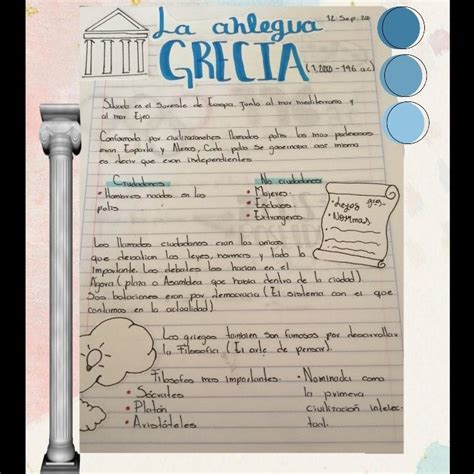 La ahlegua
12. Sep.
GRECIA (1,200 - 146 a.c)
Situada en el Sureste de Europa, junto al mar mediterraneo y
al mar Ejeo
Conformada por civilizaciones llamados polis las mas poderosas
eran Esparta y Atenas, Cada polis se governaba asi misma
es decir que eran independientes
Ciudadanos
• Hombres nacidos en las
polis
No ciudadanos
• Mujeres
• Esclavos
• Extrangeros
• Leyes
• Normas
Los llamados ciudadanos eran los unicos
que devatian las leyes, normas y todo lo
importante. Los debates los hacian en el
Agora (plaza o Asamblea que habia dentro de la ciudad)
Sus botaciones eran por democracia (El sistema con el que
contamos en la actualidad)
Los griegos tambien son famosos por desarrollar
la Filosofia (El arte de pensar).
Filosofos mas importantes.
• Sócrates
• Platón
• Aristóteles
• Nominada como
la primera
civilización intelec
tual.